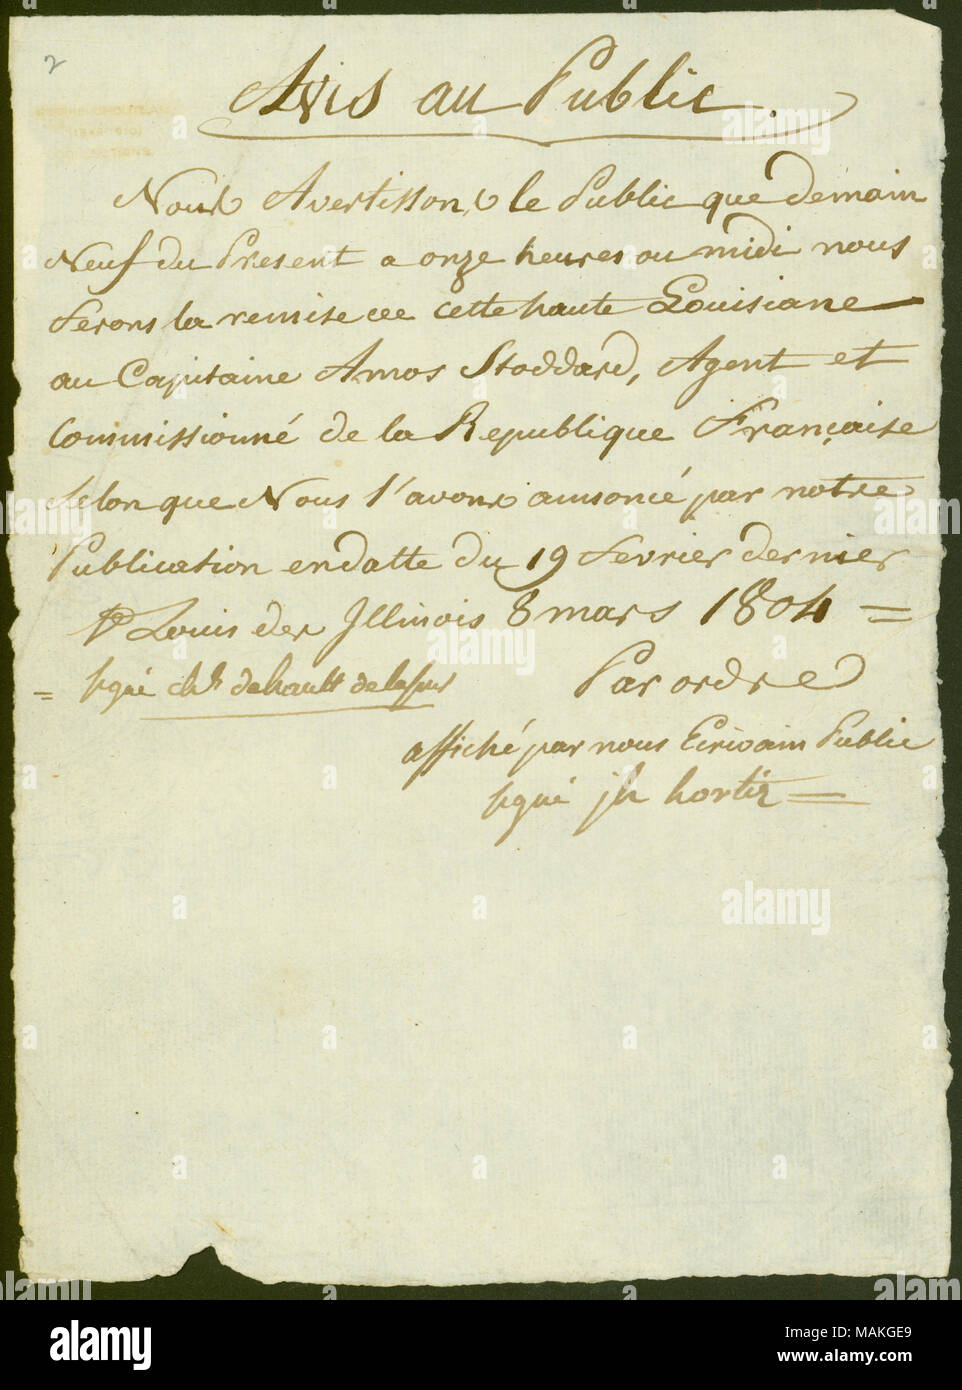 2
Avis au Public.
Nous Avertissons le Public que demain
Neuf du Present a onze heures ou midi nous
ferons la remise de cette haute Louisiane
au Capitaine Amos Stoddard, Agent et
Commissionné de la Republique Française
selon que Nous l'avons annoncé par notre
Publication en datte du 19 fevrier dernier
St Louis des Illinois 8 mars 1804 =
= signé chs dehault delassus Par ordre
affiché par nous Ecrivain Public
signé jh hortiz =
alamy
Image ID: MAKGE9
www.alamy.com